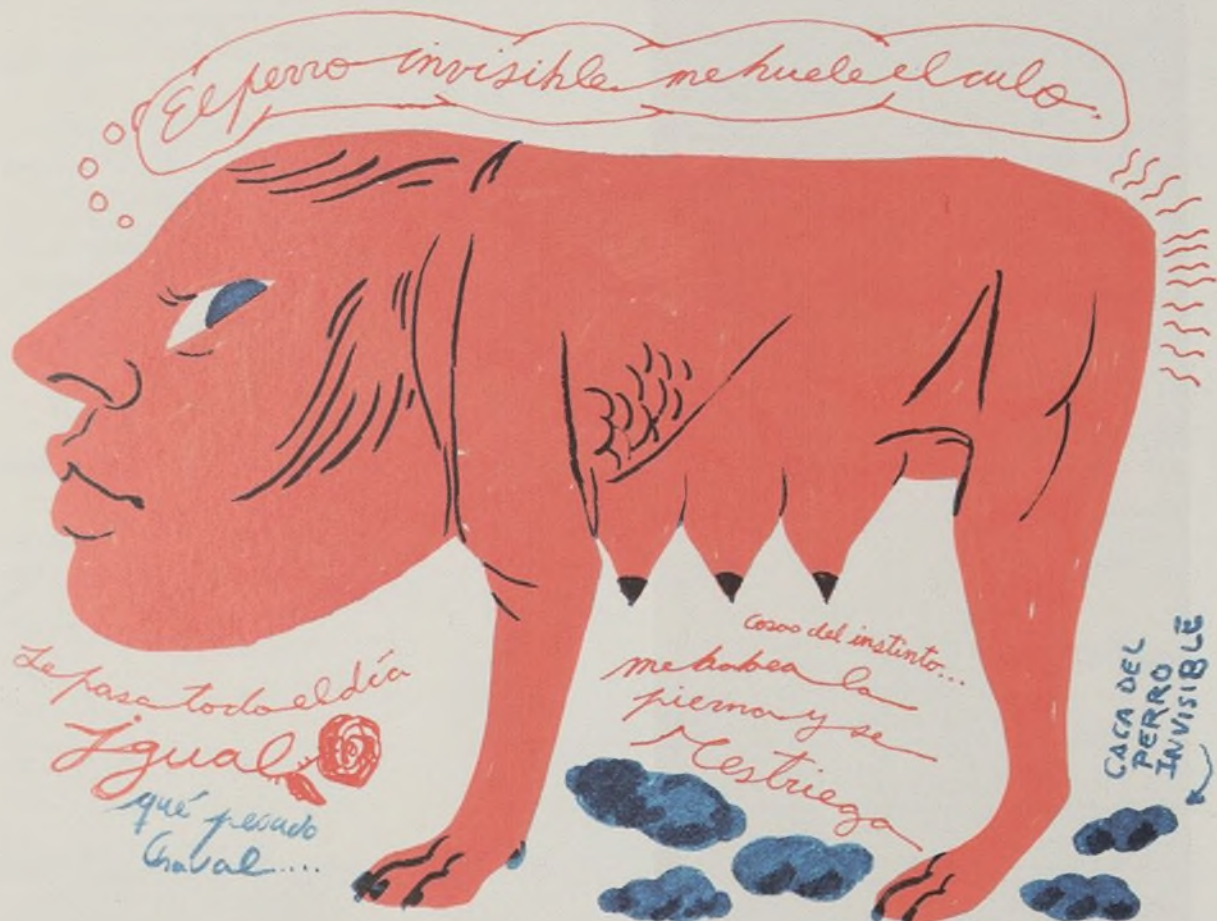 El perro invisible me huele el culo.
Se pasa todo el día
Igual
qué pesado
Chaval....
cosas del instinto...
me babea la
pierna y se
restriega
CACA DEL
PERRO
INVISIBLE